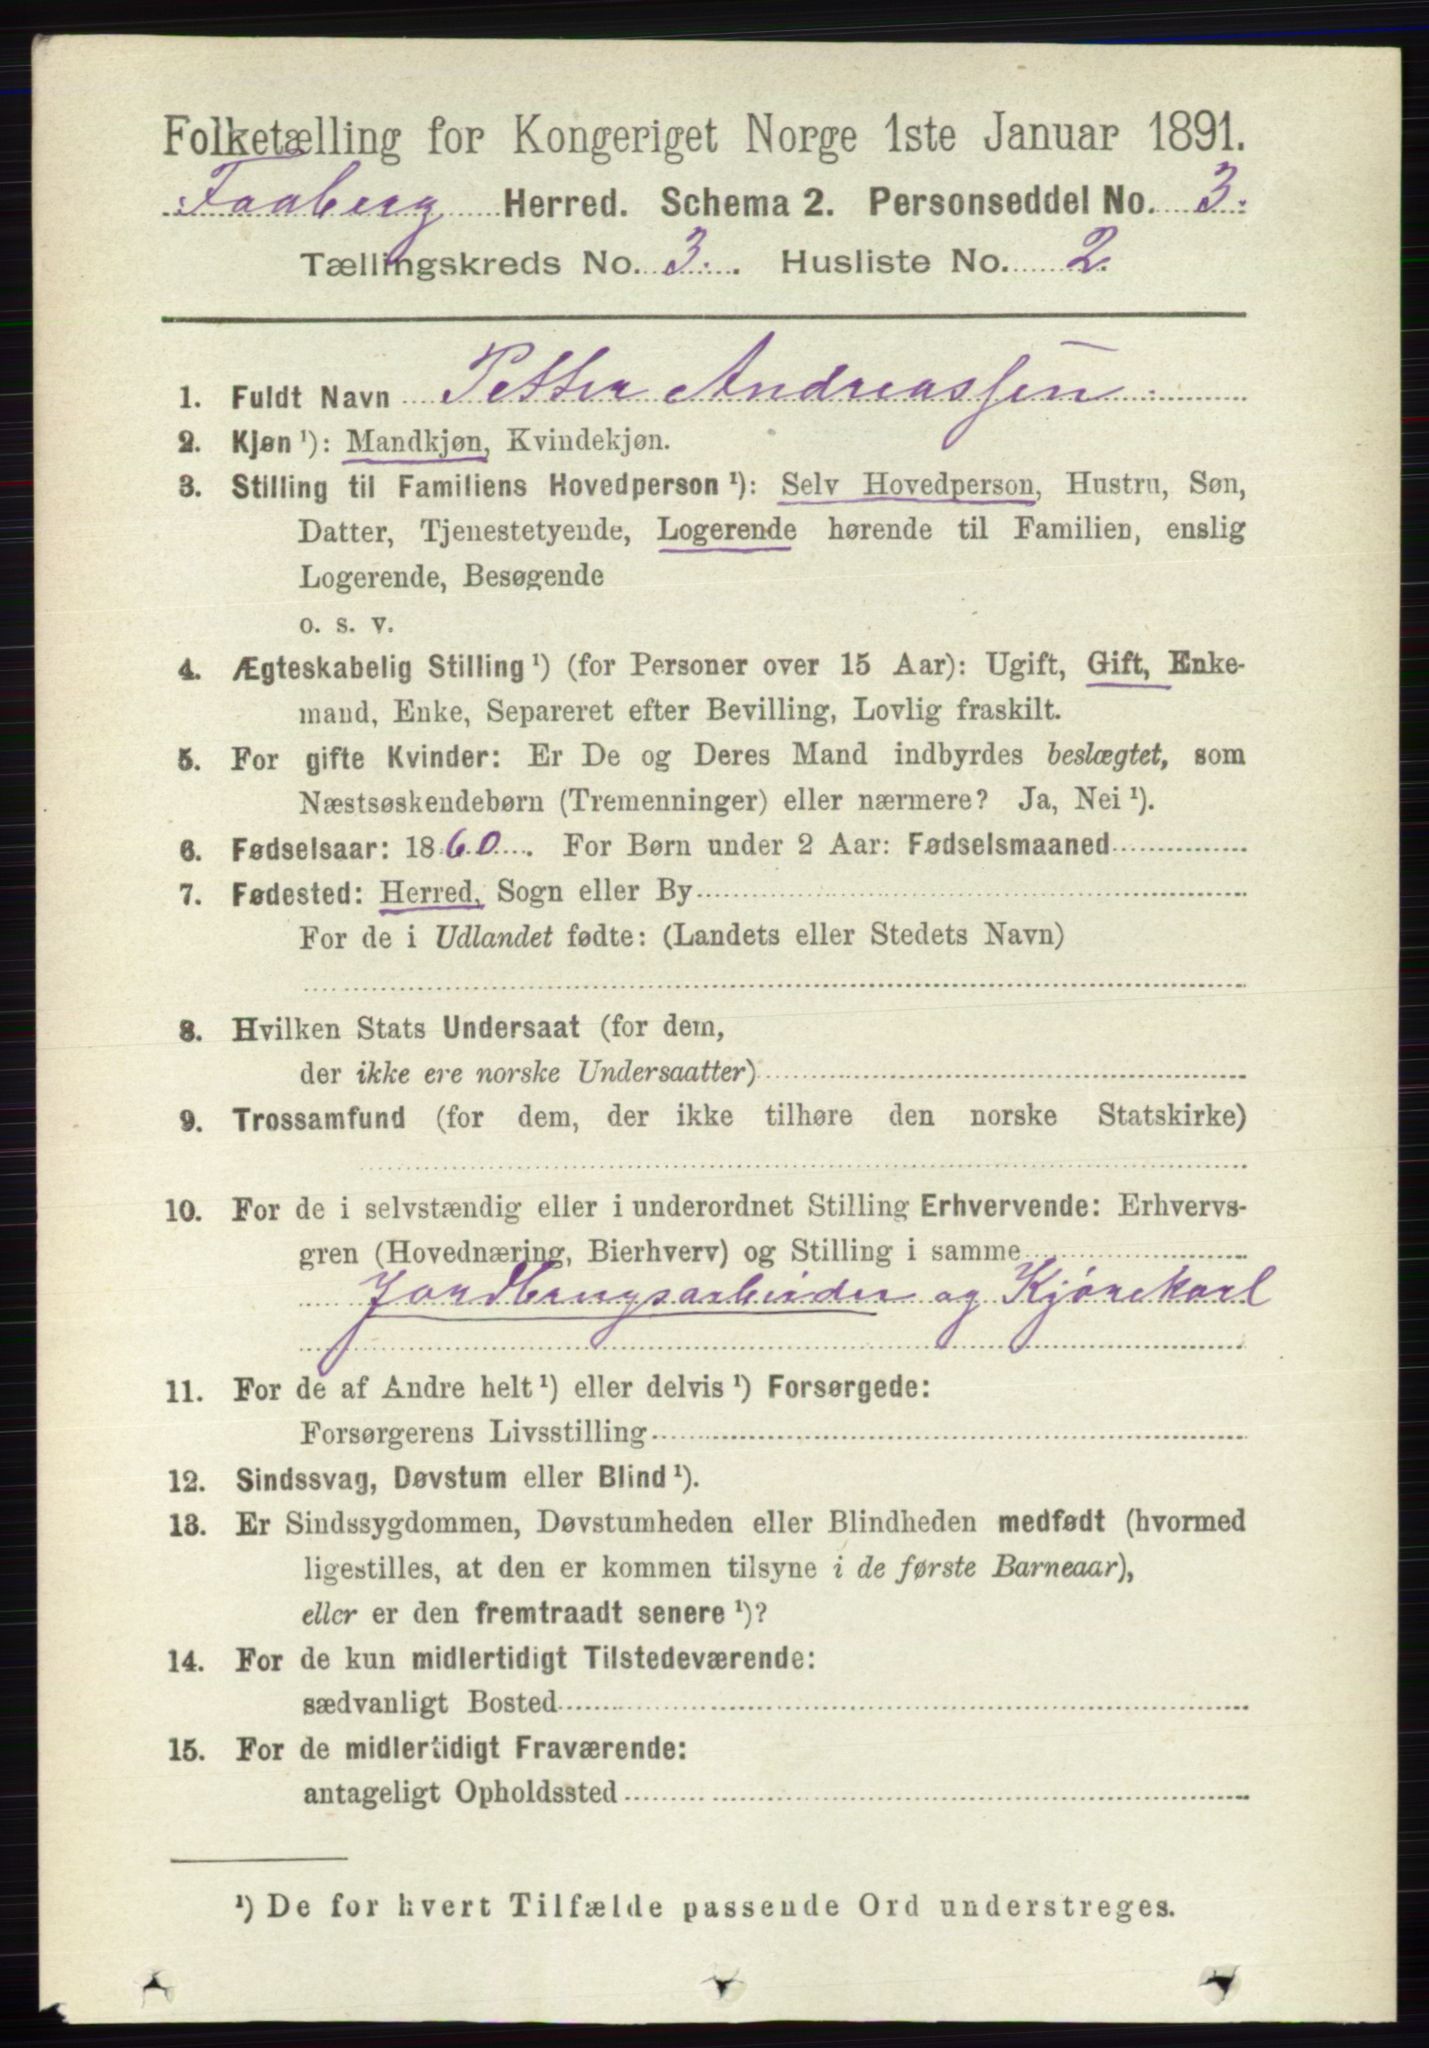 Folketælling for Kongeriget Norge 1ste Januar 1891.
Faaberg Herred. Schema 2. Personseddel No. 3.
Tællingskreds No. 3. Husliste No. 2.
1. Fuldt Navn Petter Andreassen
2. Kjøn ¹): Mandkjøn, Kvindekjøn.
3. Stilling til Familiens Hovedperson ¹): Selv Hovedperson, Hustru, Søn,
Datter, Tjenestetyende, Logerende hørende til Familien, enslig
Logerende, Besøgende
o. s. v.
4. Ægteskabelig Stilling ¹) (for Personer over 15 Aar): Ugift, Gift, Enke-
mand, Enke, Separeret efter Bevilling, Lovlig fraskilt.
5. For gifte Kvinder: Er De og Deres Mand indbyrdes beslægtet, som
Næstsøskendebørn (Tremenninger) eller nærmere? Ja, Nei ¹).
6. Fødselsaar: 1860. For Børn under 2 Aar: Fødselsmaaned
7. Fødested: Herred, Sogn eller By
For de i Udlandet fødte: (Landets eller Stedets Navn)
8. Hvilken Stats Undersaat (for dem,
der ikke ere norske Undersaatter)
9. Trossamfund (for dem, der ikke tilhøre den norske Statskirke)
10. For de i selvstændig eller i underordnet Stilling Erhvervende: Erhvervs-
gren (Hovednæring, Bierhverv) og Stilling i samme
Jordbrugsarbeider og Kjørekarl
11. For de af Andre helt ¹) eller delvis ¹) Forsørgede:
Forsørgerens Livsstilling
12. Sindssvag, Døvstum eller Blind ¹).
13. Er Sindssygdommen, Døvstumheden eller Blindheden medfødt (hvormed
ligestilles, at den er kommen tilsyne i de første Barneaar),
eller er den fremtraadt senere ¹)?
14. For de kun midlertidigt Tilstedeværende:
sædvanligt Bosted
15. For de midlertidigt Fraværende:
antageligt Opholdssted
¹) De for hvert Tilfælde passende Ord understreges.